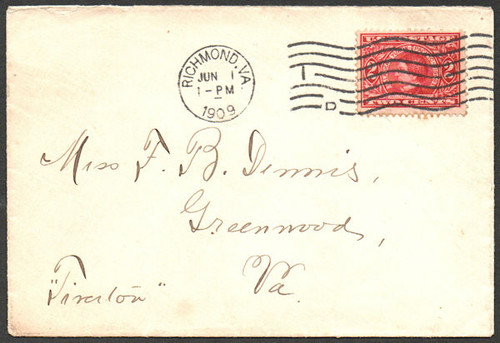 RICHMOND, VA.
JUN 1
1-PM
1909
1
D
TWO CENTS
Miss F. B. Dennis,
Greenwood,
Va.
"Tiverton"